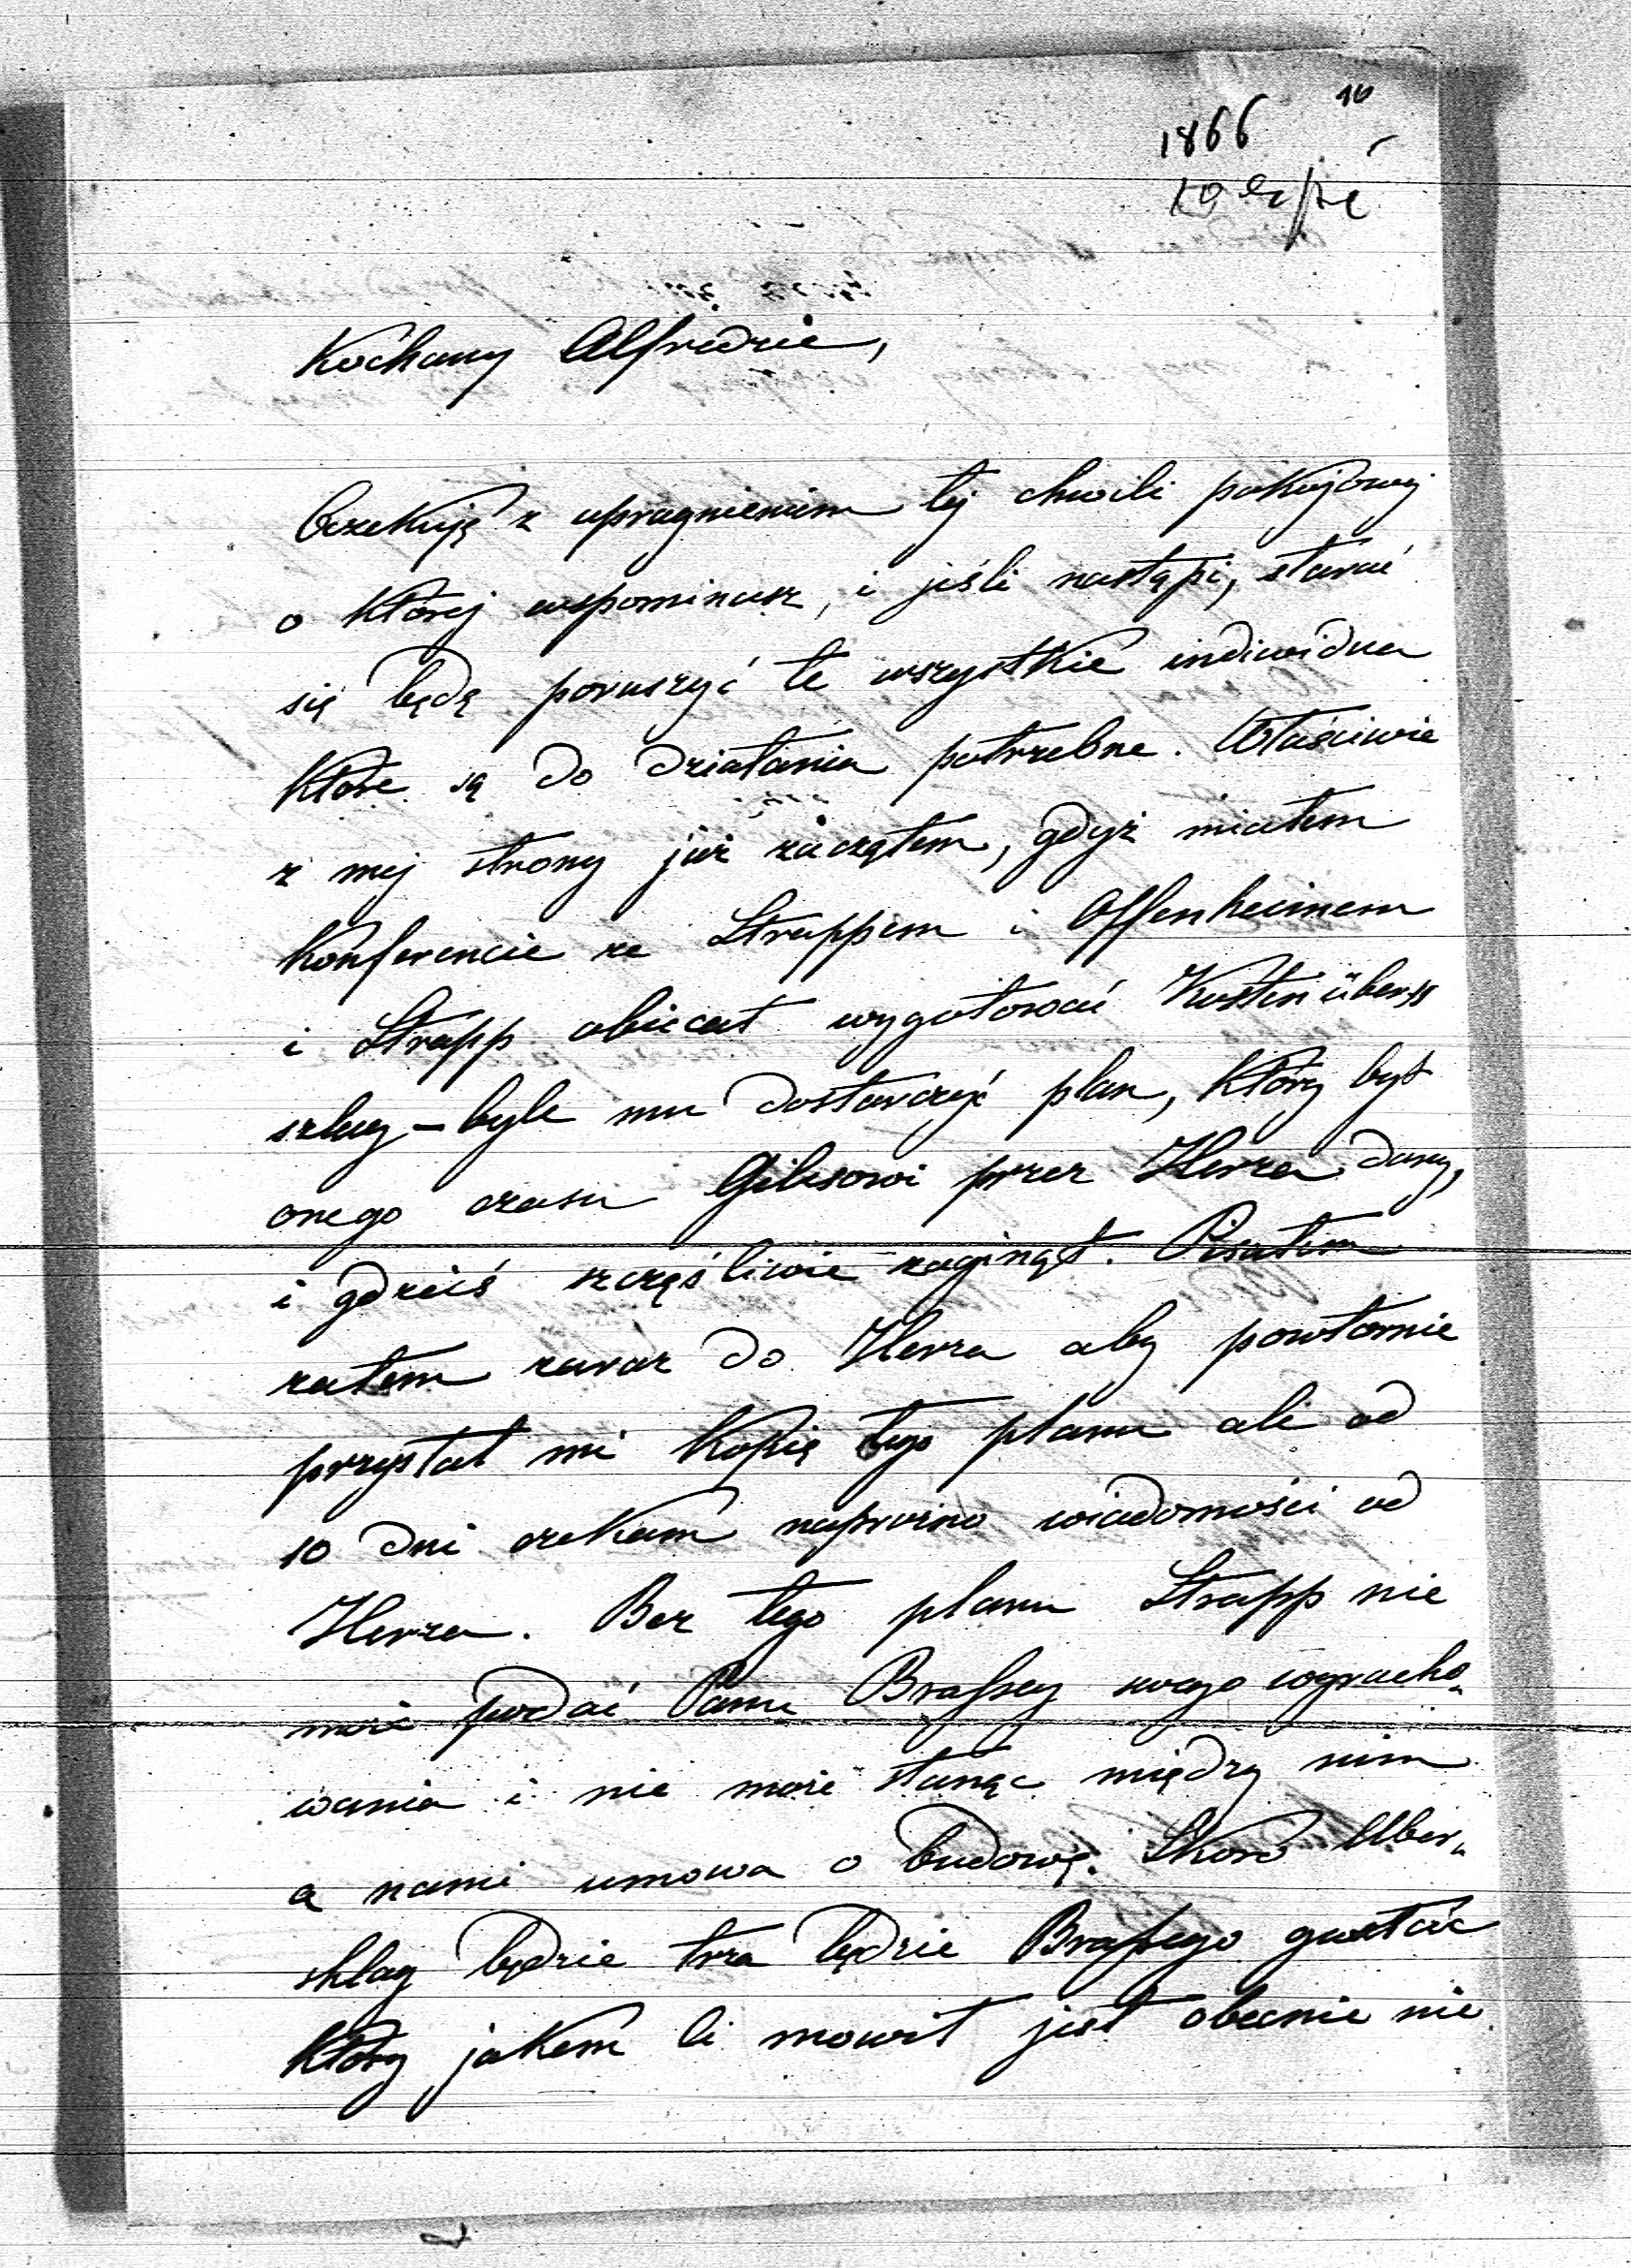 16
1866
Kochany Alfredzie,
Oczekuję z upragnieniem tej chwili pokojowej
o której wspominasz, i jeśli nastąpi, starać
się będę poruszyć te wszystkie indiwidua
które są do działania potrzebne. Właściwie
z mej strony już zacząłem, gdyż miałem
konferencie ze Strappem i Offenheimem
i Strapp obiecał wygotować Kostenüber=
szlag – byle mu dostarczyć plan, który był
onego czasu Gilesowi przez Herza dany,
i gdzieś szczęśliwie zaginął. Pisałem
zatem zaraz do Herza aby powtórnie
przysłał mi kopię tego planu ale od
10 dni czekam naprózno wiadomości od
Herza. Bez tego planu Strapp nie
może podać Panu Brassey swego wyracho„
wania i nie może stanąć między nim
a nami umowa o budowę. Skoro Uber„
shlag będzie trza będzie Brassego gwałtać
który jakem Ci mowił jest obecnie nie